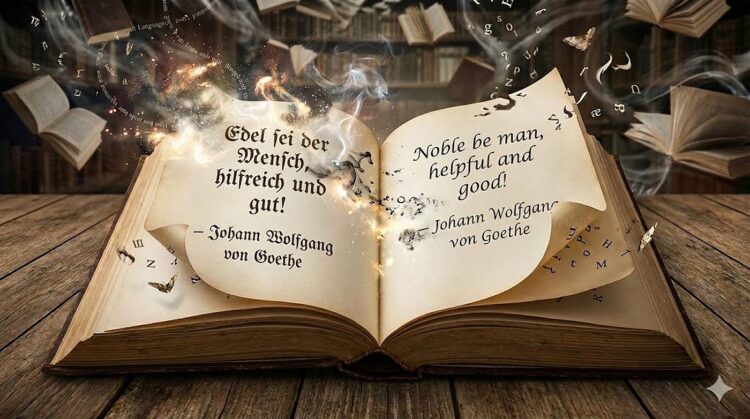 Edel ſei der
Menſch,
hilfreich und
gut!
– Johann Wolfgang
von Goethe
Noble be man,
helpful and
good!
– Johann Wolfgang
von Goethe